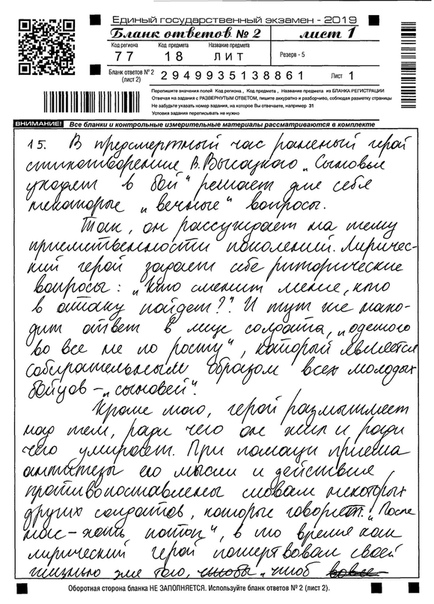 Единый государственный экзамен - 2019
Бланк ответов № 2
лист 1
Код региона Код предмета Название предмета
77 18 ЛИТ
Резерв - 5
Бланк ответов № 2 (лист 2)
2949935138861
Лист 1
Перепишите значения полей "Код региона", "Код предмета", "Название предмета" из БЛАНКА РЕГИСТРАЦИИ
Отвечая на задания с РАЗВЕРНУТЫМ ОТВЕТОМ, пишите аккуратно и разборчиво, соблюдая разметку страницы
Не забудьте указать номер задания, на которое Вы отвечаете, например 31
Условия задания переписывать не нужно
ВНИМАНИЕ! Все бланки и контрольные измерительные материалы рассматриваются в комплекте
15. В предсмертный час раненый герой
стихотворения В. Высоцкого „Сыновья
уходят в бой" решает для себя
некоторые „вечные" вопросы.
Так, он рассуждает на тему
приемственности поколений. Лиричес-
кий герой задает себе риторические
вопросы: „Кто сменит меня, кто
в атаку пойдет?". И тут же нахо-
дит ответ в лице солдата, „одетого
во все не по росту", который является
собирательным образом всех молодых
бойцов - „сыновей".
Кроме того, герой размышляет
над тем, ради чего он жил и ради
чего умирает. При помощи приема
антитезы его мысли и действия
противопоставлены словам некоторых
других солдатов, которые говорят: „После
нас - хоть потоп", в то время как
лирический герой пожертвовал своей
жизнью для того, чтобы „чтоб
Оборотная сторона бланка НЕ ЗАПОЛНЯЕТСЯ. Используйте бланк ответов № 2 (лист 2).